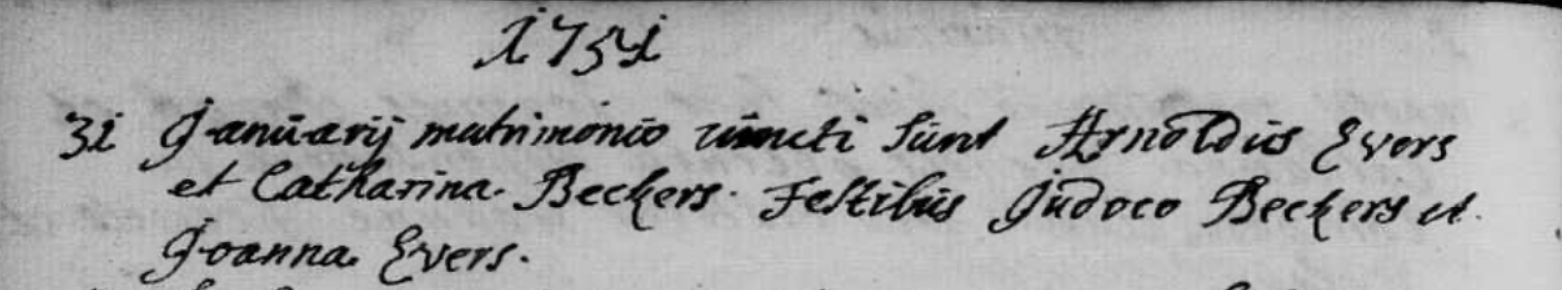 1751
31 Januarij matrimonio iuncti sunt Arnoldus Evers
et Catharina Beckers. Testibus Judoco Beckers et
Joanna Evers.